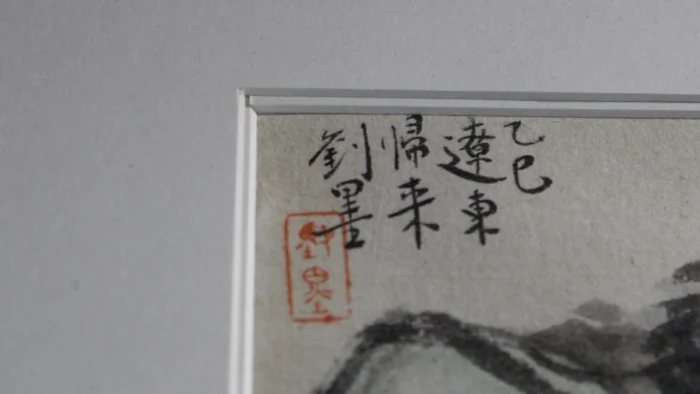 乙巳
遼東
帰来
劉墨
劉墨